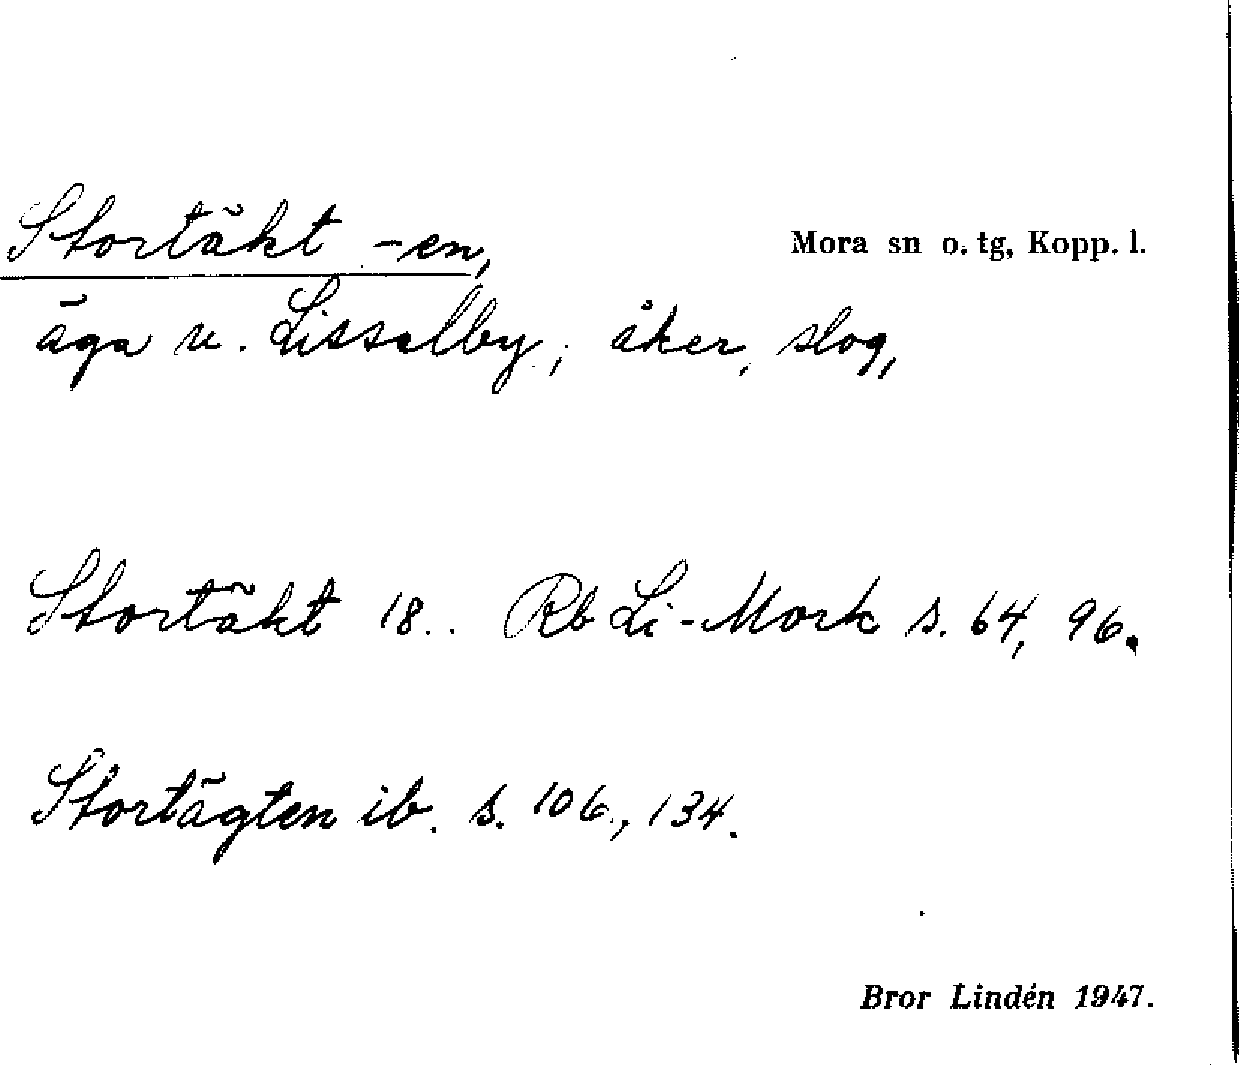 Stortäkt -en,
Mora sn o. tg, Kopp. l.
äga v. Lisselby; åker, slog,
Stortäkt 18.. Rb Li-Mork s. 64, 96.
Stortägten ib. s. 106, 134.
Bror Lindén 1947.